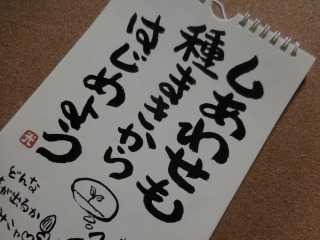 しあわせも
種まきから
はじめよう
どんな
が出るか